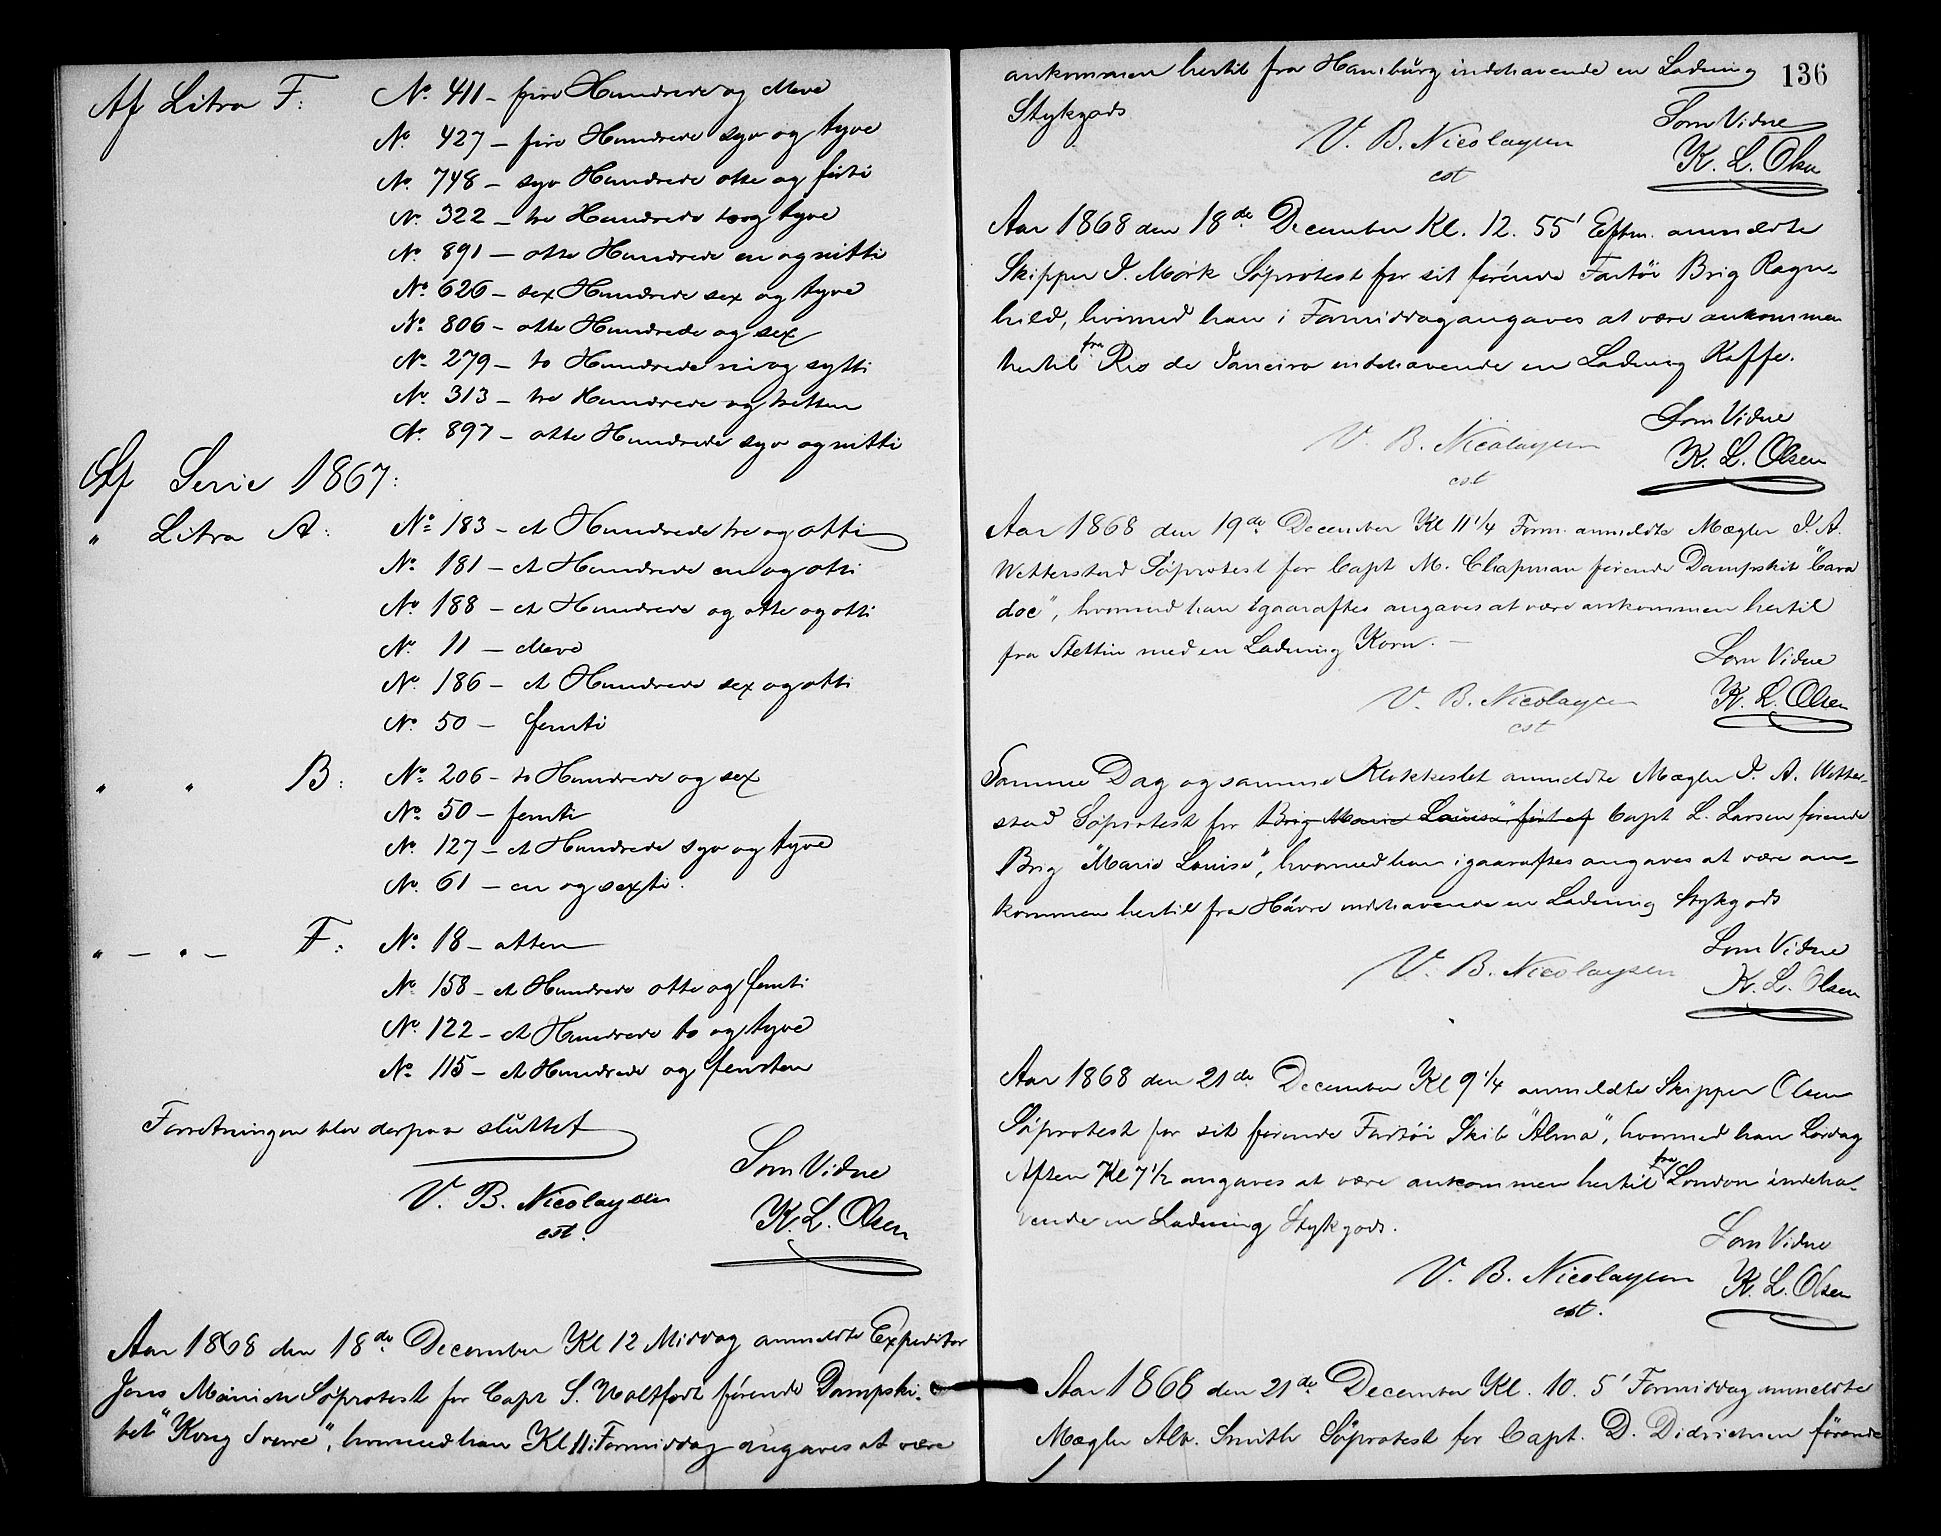 Af Litra F: No. 411 – fire Hundrede og elleve
No. 427 – fire Hundrede syv og tyve
No. 748 – syv Hundrede otte og førti
No. 322 – tre Hundrede to og tyve
No. 891 – otte Hundrede en og nitti
No. 626 – sex Hundrede sex og tyve
No. 806 – otte Hundrede og sex
No. 279 – to Hundrede ni og sytti
No. 313 – tre Hundrede og tretten
No. 897 – otte Hundrede syv og nitti
Af Serie 1867:
" Litra A: No. 183 – et Hundrede tre og otti
No. 181 – et Hundrede en og otti
No. 188 – et Hundrede og otte og otti
No. 11 – elleve
No. 186 – et Hundrede sex og otti
No. 50 – femti
" " B: No. 206 – to Hundrede og sex
No. 50 – femti
No. 127 – et Hundrede syv og tyve
No. 61 – en og sexti.
" – " – F: No. 18 – atten
No. 158 – et Hundrede otte og femti
No. 122 – et Hundrede to og tyve
No. 115 – et Hundrede og femten
Forretningen blev derpaa sluttet
Som Vidne
V. B. Nicolaysen
K. L. Olsen
cst.
Aar 1868 den 18de December Kl 12 Middag anmeldte Expeditør
Jens Mönich Söprotest for Capt S. Woltfodt førende Dampski-
bet "Kong Sverre", hvormed han Kl 11 Formiddag angaves at være
136
ankommen hertil fra Hamburg indehavende en Ladning
Stykgods
Som Vidne
V. B. Nicolaysen
K. L. Olsen
cst
Aar 1868 den 18de December Kl. 12. 55' Eftm. anmeldte
Skipper I. Mørk Söprotest for sit førende Fartöi Brig Ragn-
hild, hvormed han i Formiddag angaves at være ankommen
hertil fra Rio de Janeiro indehavende en Ladning Kaffe.
Som Vidne
V. B. Nicolaysen
K. L. Olsen
cst
Aar 1868 den 19de December Kl 11 1/4 Form. anmeldte Mægler I. A.
Wetterstad Söprotest for Capt M. Chapman førende Dampskib "Cara
doc", hvormed han igaaraftes angaves at være ankommen hertil
fra Stettin med en Ladning Korn. –
Som Vidne
V. B. Nicolaysen
K. L. Olsen
cst
Samme Dag og samme Klokkeslet anmeldte Mægler I. A. Wetter-
stad Søprotest for Brig "Marie Louise" ført af Capt L. Larsen førende
Brig "Marie Louise", hvormed han igaaraftes angaves at være an-
kommen hertil fra Hâvre indehavende en Ladning Stykgods
Som Vidne
V. B. Nicolaysen
K. L. Olsen
Aar 1868 den 21de December Kl 9 1/4 anmeldte Skipper Olsen
Söprotest for sit førende Fartöi Skib "Alma", hvormed han Lördag
Aften Kl 7 1/2 angaves at være ankommen hertil fra London indeha-
vende en Ladning Stykgods.
Som Vidne
V. B. Nicolaysen
K. L. Olsen
cst.
Aar 1868 den 21de December Kl. 10. 5' Formiddag anmeldte
Mægler Alb. Smith Söprotest for Capt. D. Didrichsen förende